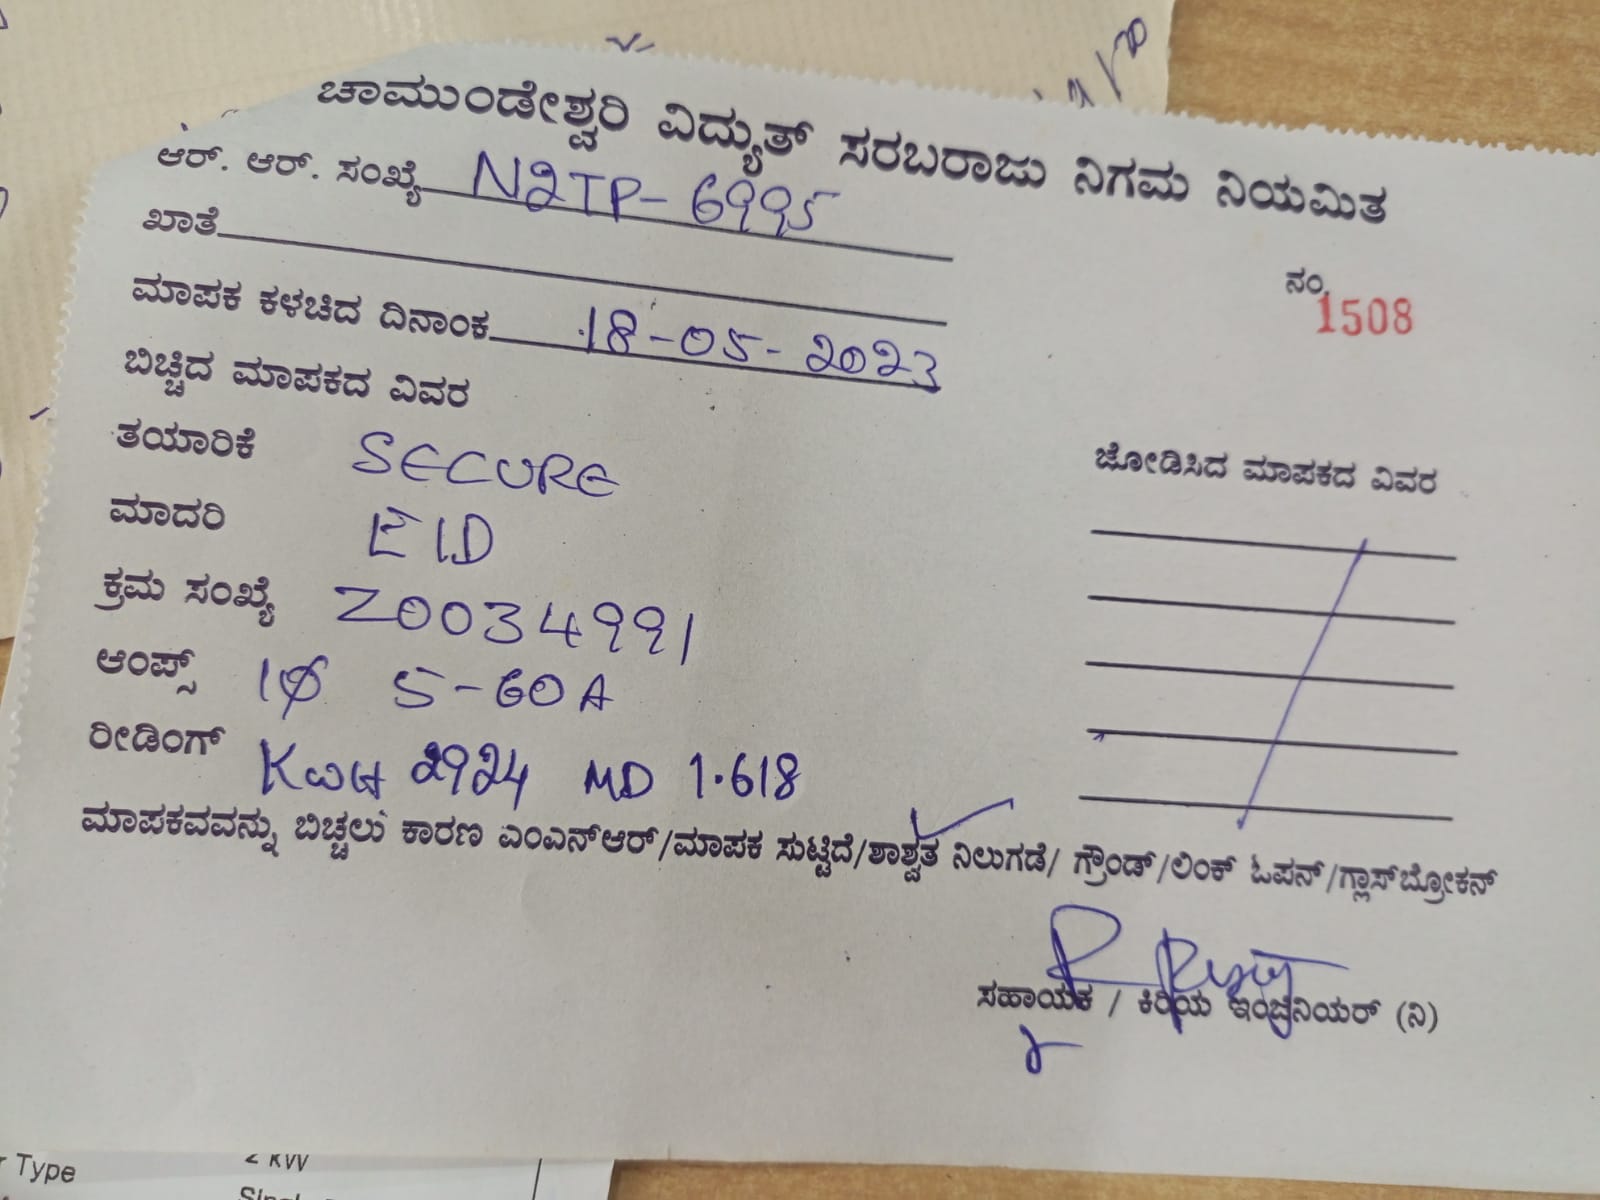 ಚಾಮುಂಡೇಶ್ವರಿ ವಿದ್ಯುತ್ ಸರಬರಾಜು ನಿಗಮ ನಿಯಮಿತ
ಆರ್. ಆರ್. ಸಂಖ್ಯೆ N2TP- 6995
ಖಾತೆ
ನಂ. 1508
ಮಾಪಕ ಕಳಚಿದ ದಿನಾಂಕ 18-05-2023
ಬಿಚ್ಚಿದ ಮಾಪಕದ ವಿವರ
ಜೋಡಿಸಿದ ಮಾಪಕದ ವಿವರ
ತಯಾರಿಕೆ SECURE
ಮಾದರಿ E1D
ಕ್ರಮ ಸಂಖ್ಯೆ Z0034991
ಆಂಪ್ಸ್ 1Ø 5-60A
ರೀಡಿಂಗ್ KWH 2924 MD 1.618
ಮಾಪಕವವನ್ನು ಬಿಚ್ಚಲು ಕಾರಣ ಎಂಎನ್‌ಆರ್/ಮಾಪಕ ಸುಟ್ಟಿದೆ/ಶಾಶ್ವತ ನಿಲುಗಡೆ/ ಗ್ರೌಂಡ್/ಲಿಂಕ್ ಓಪನ್/ಗ್ಲಾಸ್‌ಬ್ರೋಕನ್
ಸಹಾಯಕ / ಕಿರಿಯ ಇಂಜಿನಿಯರ್ (ನಿ)
Type
2 KW